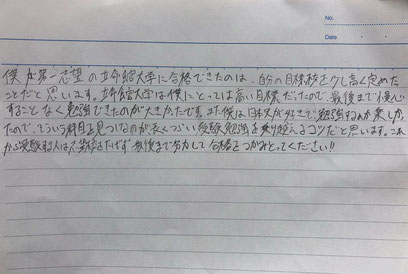 No.
Date
僕が第一志望の立命館大学に合格できたのは、自分の目標校を少し高く定めた
ことだと思います。立命館大学は僕にとっては高い目標だったので、最後まで慢心
することなく勉強できたのが大きかったです。また僕は日本史が好きで勉強するのが楽しかっ
たので、そういう科目を見つけるのが長くつらい受験勉強を乗り越えるコツだと思います。これ
から受験する人は最後まで努力して合格をつかみとってください!!